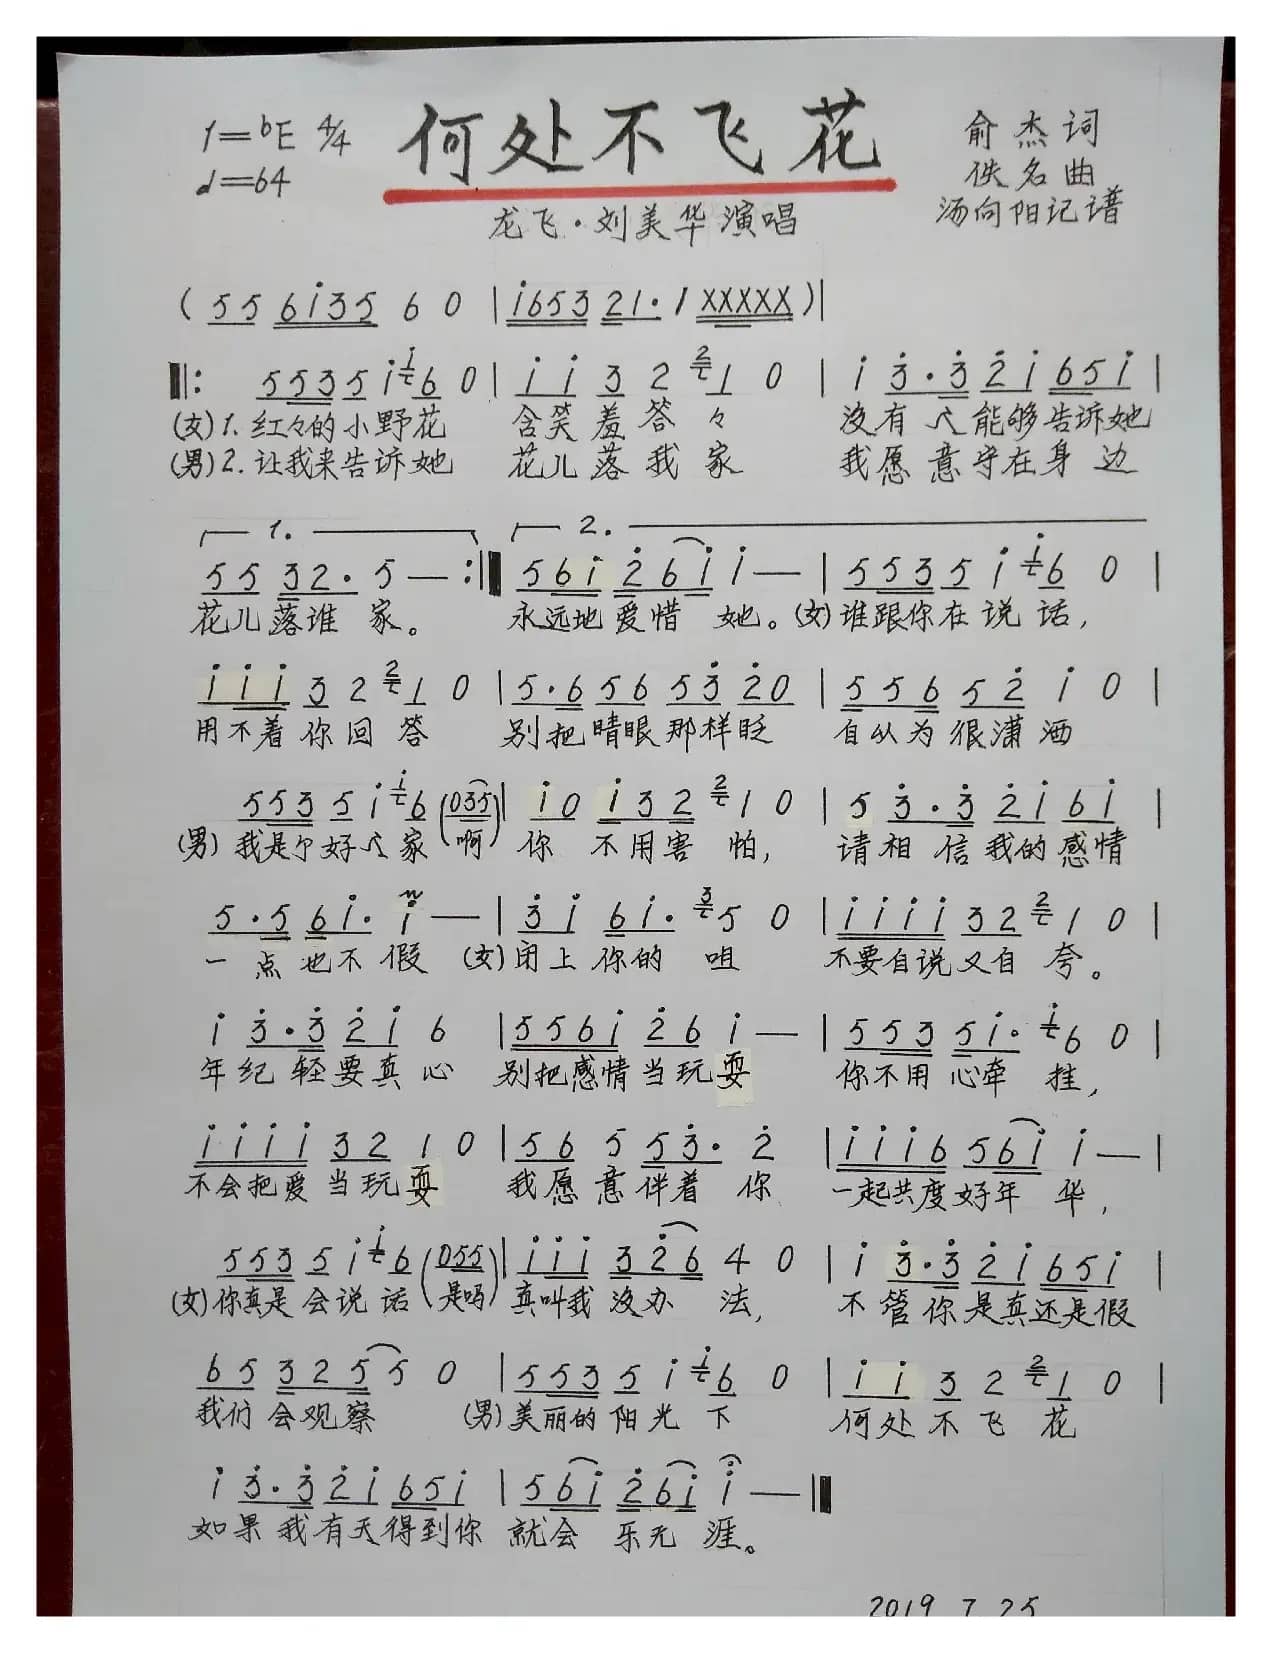 1=bE 4/4 何处不飞花 俞杰词
♩=64 佚名曲
龙飞·刘美华演唱 汤向阳记谱
( 5 5 6 i 3 5 6 0 | i 6 5 3 2 1 · / X X X X X ) |
‖: 5 5 3 5 i i 6 0 | i i 3 2 2 1 0 | i 3 · 3 2 i 6 5 i |
(女) 1. 红々的小野花 含笑羞答々 没有人能够告诉她
(男) 2. 让我来告诉她 花儿落我家 我愿意守在身边
1. 2.
5 5 3 2 · 5 — :‖ 5 6 i 2 6 i i — | 5 5 3 5 i i 6 0 |
花儿落谁家。 永远地爱惜她。(女) 谁跟你在说话,
i i i 3 2 2 1 0 | 5 · 6 5 6 5 3 2 0 | 5 5 6 5 2 i 0 |
用不着你回答 别把睛眼那样眨 自从为很潇洒
5 5 3 5 i i 6 (0 3 5) | i 0 i 3 2 2 1 0 | 5 3 · 3 2 i 6 i |
(男) 我是个好人家 (啊) 你不用害怕, 请相信我的感情
5 · 5 6 i · i — | 3 i 6 i · 3 5 0 | i i i i 3 2 2 1 0 |
一点也不假 (女) 闭上你的咀 不要自说又自夸。
i 3 · 3 2 i 6 | 5 5 6 i 2 6 i — | 5 5 3 5 i · i 6 0 |
年纪轻要真心 别把感情当玩耍 你不用心牵挂,
i i i i 3 2 1 0 | 5 6 5 5 3 · 2 | i i i 6 5 6 i i — |
不会把爱当玩耍 我愿意伴着你 一起共度好年华,
5 5 3 5 i i 6 (0 5 5) | i i i 3 2 6 4 0 | i 3 · 3 2 i 6 5 i |
(女) 你真是会说话 (是吗) 真叫我没办法, 不管你是真还是假
6 5 3 2 5 5 0 | 5 5 3 5 i i 6 0 | i i 3 2 2 1 0 |
我们会观察 (男) 美丽的阳光下 何处不飞花
i 3 · 3 2 i 6 5 i | 5 6 i 2 6 i i — ‖
如果我有天得到你 就会乐无涯。
2019 7 25